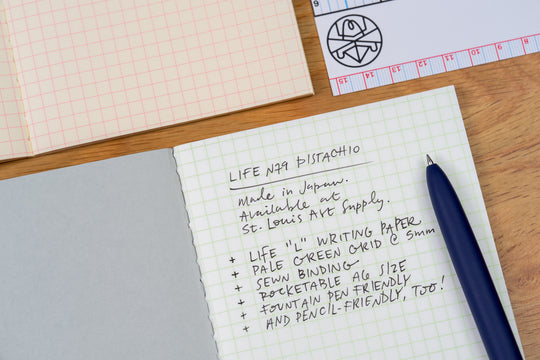 6
8
9
10
11
12
13
14
15
LIFE N79 PISTACHIO
Made in Japan.
Available at
St. Louis Art Supply.
+ LIFE "L" WRITING PAPER
+ PALE GREEN GRID @ 5mm
+ SEWN BINDING
+ POCKETABLE A6 SIZE
+ FOUNTAIN PEN FRIENDLY
+ AND PENCIL-FRIENDLY, TOO!